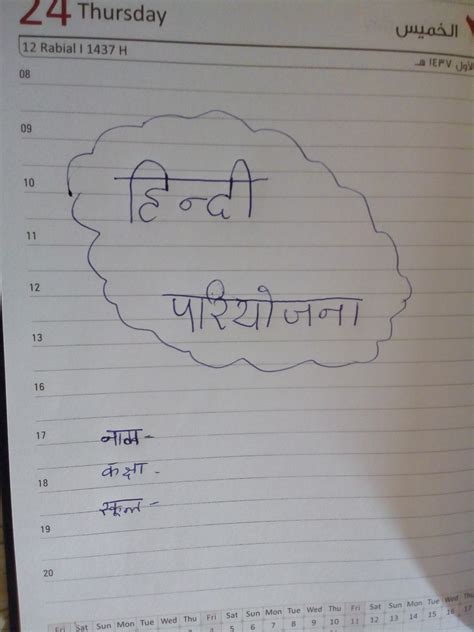 24 Thursday
الخميس
12 Rabial I 1437 H
الأول ١٤٣٧ هـ
08
09
10
हिन्दी
11
12
परियोजना
13
16
17
नाम -
कक्षा -
18
स्कूल -
19
20
Fri Sat Sun Mon Tue Wed Thu Fri Sat Sun Mon Tue Wed Thu Fri Sat Sun Mon Tue Wed Thu
4 5 6 7 8 9 10 11 12 13 14 15 16 17